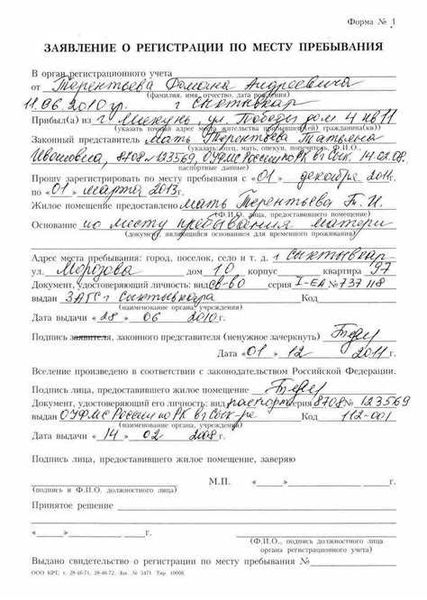 Форма № 1
ЗАЯВЛЕНИЕ О РЕГИСТРАЦИИ ПО МЕСТУ ПРЕБЫВАНИЯ
В орган регистрационного учета
от Терентьева Романа Андреевича
(фамилия, имя, отчество, дата рождения)
11.06.2010 г.р. г Сыктывкар
Прибыл(а) из г Микунь, ул. Победы дом 4 кв 11
(указать точный адрес места жительства прибывшего(ей) гражданина(ки))
Законный представитель Мать Терентьева Татьяна
(указать: отец, мать, опекун, попечитель, Ф.И.О.,
Ивановна, 8708 № 123569, ОУФМС России по РК в г Сык. 14.02.08.
паспортные данные)
Прошу зарегистрировать по месту пребывания с «01» декабря 2011г.
по «01» марта 2013г.
Жилое помещение предоставлено мать Терентьева Т. И.
(Ф.И.О. лица, предоставившего помещение)
Основание по месту пребывания матери
(документ являющийся основанием для временного проживания)
Адрес места пребывания: город, поселок, село и т. д. г Сыктывкар
ул. Морозова дом 10 корпус квартира 97
Документ, удостоверяющий личность: вид св-во серия I-ЕА № 737118
выдан ЗАГС г Сыктывкара Код
(наименование органа, учреждения)
Дата выдачи «28» 06 2010 г.
Подпись заявителя, законного представителя (ненужное зачеркнуть)
Дата «01» 12 2011 г.
Вселение произведено в соответствии с законодательством Российской Федерации.
Подпись лица, предоставившего жилое помещение
Документ, удостоверяющий его личность: вид паспорт серия 8708 № 123569
выдан ОУФМС России по РК в г Сык-ре Код 112-001
(наименование органа, учреждения)
Дата выдачи «14» 02 2008 г.
Подпись лица, предоставившего жилое помещение, заверяю
М.П. « » г.
(подпись и Ф.И.О. должностного лица)
Принятое решение
« » г.
(Ф.И.О., подпись должностного лица
органа регистрационного учета)
Выдано свидетельство о регистрации по месту пребывания №
ООО КРТ, т. 28-46-71, 28-46-72. Зак. № 2471. Тир. 10000.